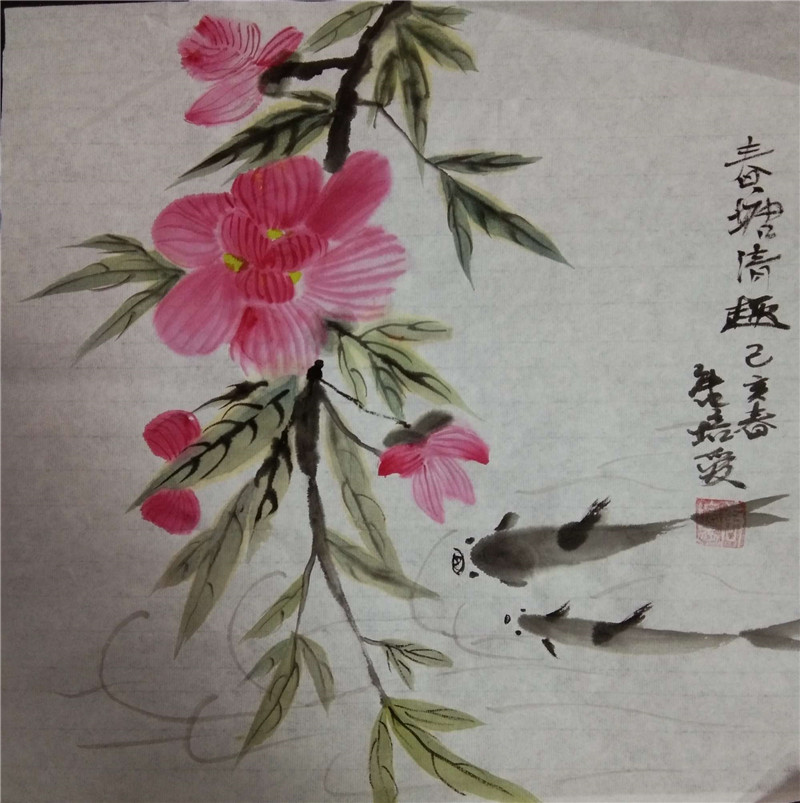 春塘清趣己亥春
培爱